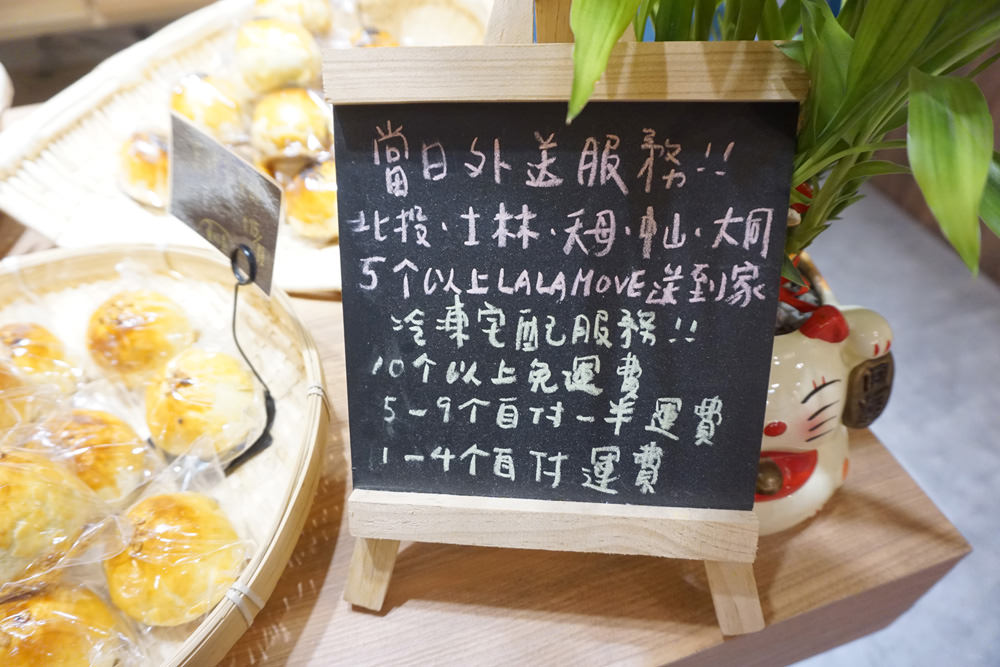 當日外送服務!!
北投·士林·天母·中山·大同
5个以上LALAMOVE送到家
冷凍宅配服務!!
10个以上免運費
5-9个自付一半運費
1-4个自付運費